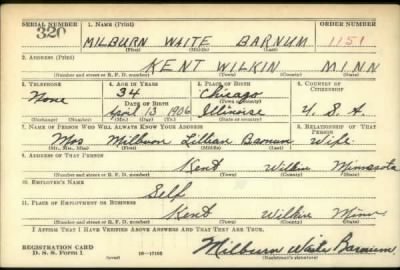 SERIAL NUMBER 1. NAME (Print) ORDER NUMBER
320 MILBURN WAITE BARNUM 1151
(First) (Middle) (Last)
2. ADDRESS (Print)
KENT WILKIN MINN
(Number and street or R. F. D. number) (Town) (County) (State)
3. TELEPHONE 4. AGE IN YEARS 5. PLACE OF BIRTH 6. COUNTRY OF CITIZENSHIP
None 34 Chicago
DATE OF BIRTH (Town or county)
April 13 1906 Illinoise U.S.A.
(Mo.) (Day) (Yr.) (State or country)
7. NAME OF PERSON WHO WILL ALWAYS KNOW YOUR ADDRESS 8. RELATIONSHIP OF THAT PERSON
Mrs Milburn Lillian Barnum Wife
(Mr., Mrs., Miss) (First) (Middle) (Last)
9. ADDRESS OF THAT PERSON
Kent Wilkin Minnesota
(Number and street or R. F. D. number) (Town) (County) (State)
10. EMPLOYER'S NAME
Self
11. PLACE OF EMPLOYMENT OR BUSINESS
Kent Wilkin Minn
(Number and street or R. F. D. number) (Town) (County) (State)
I AFFIRM THAT I HAVE VERIFIED ABOVE ANSWERS AND THAT THEY ARE TRUE.
REGISTRATION CARD
D. S. S. Form 1 16—17105 (over) Milburn Waite Barnum
(Registrant's signature)